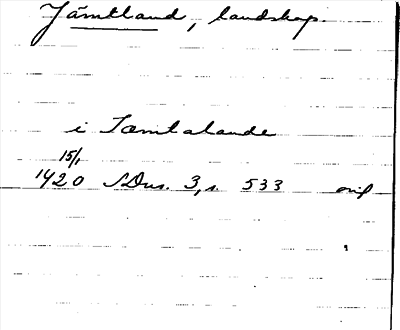 Jämtland, landskap.
i Iæmtalande
15/1
1420 SDns. 3, s. 533 orig